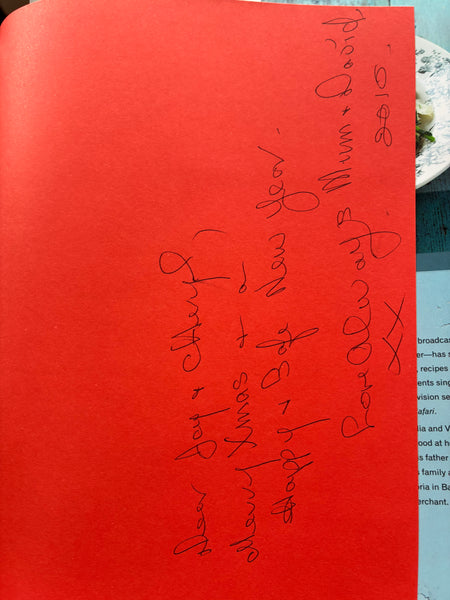 Dear Jay + Cheryl,
Merry Xmas + a
Happy + Safe New Year.
Love Always Mum + David
XX 2010.
broadcas
er—has s
, recipes
ents sing
vision se
afari.
lia and V
ood at h
s father
s family a
oria in Ba
erchant.